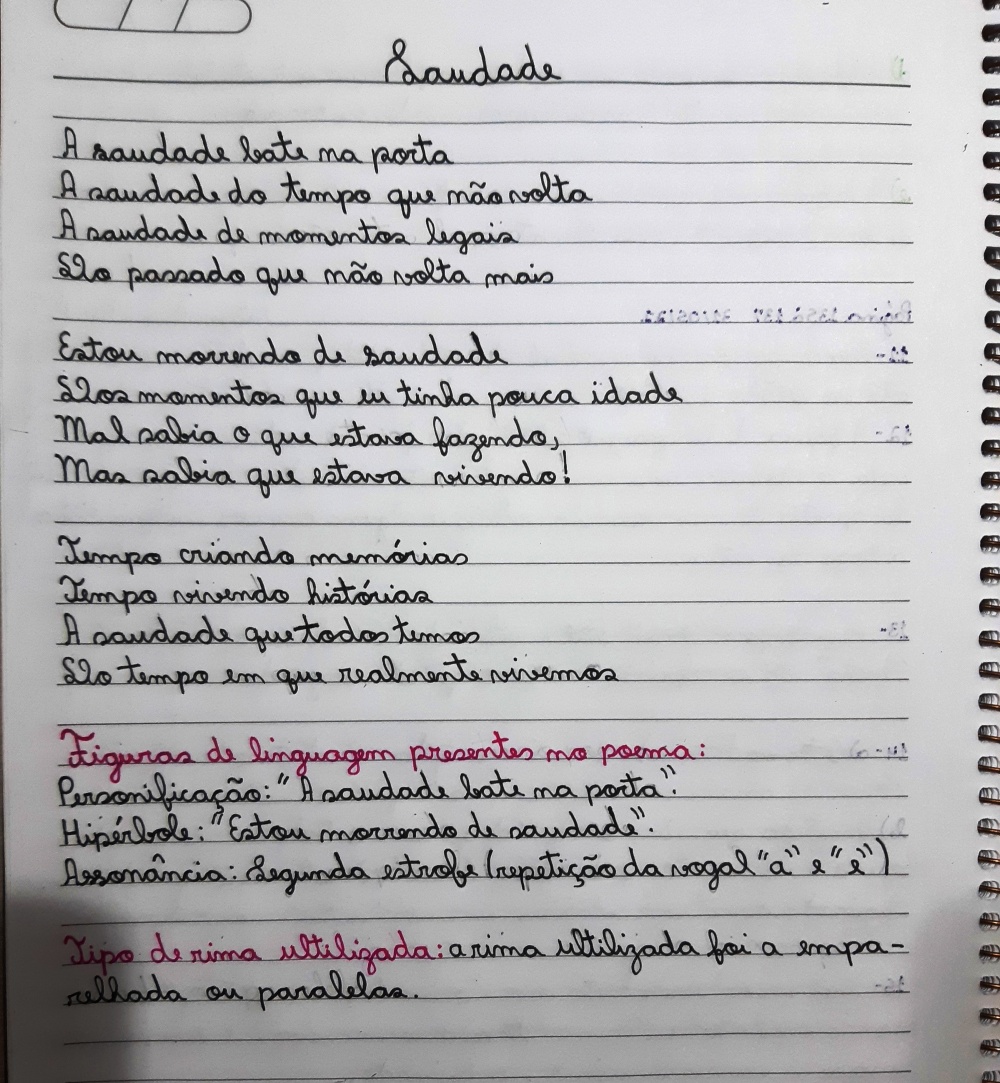 Saudade
A saudade bate na porta
A saudade do tempo que não volta
A saudade de momentos legais
Do passado que não volta mais
Estou morrendo de saudade
Dos momentos que eu tinha pouca idade
Mal sabia o que estava fazendo,
Mas sabia que estava vivendo!
Tempo criando memórias
Tempo vivendo histórias
A saudade que todos temos
Do tempo em que realmente vivemos
Figuras de linguagem presentes no poema:
Personificação: "A saudade bate na porta".
Hipérbole: "Estou morrendo de saudade".
Assonância: Segunda estrofe (repetição da vogal "a" e "e")
Tipo de rima ultilizada: a rima ultilizada foi a empa-
relhada ou paralelas.